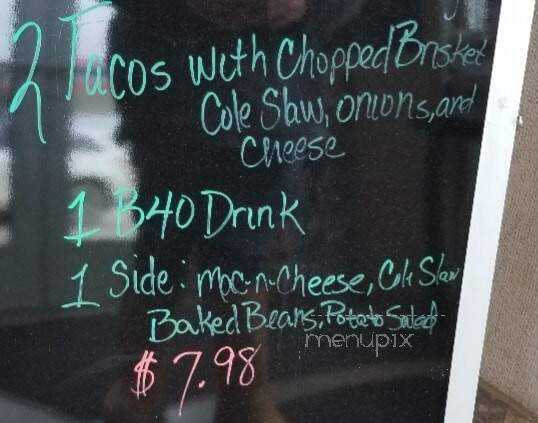 2 Tacos with Chopped Brisket
Cole Slaw, onions, and
Cheese
1 B40 Drink
1 Side: Mac-n-Cheese, Cole Slaw
Baked Beans, Potato Salad
menupix
$7.98